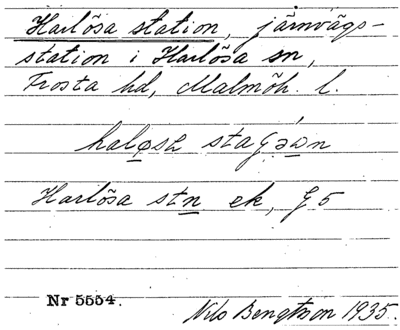 Harlösa station, järnvägs-
station i Harlösa sn,
Frosta hd, Malmöh. l.
Harlösa stn ek, G5
Nr 5554.
Nils Bengtson 1935.